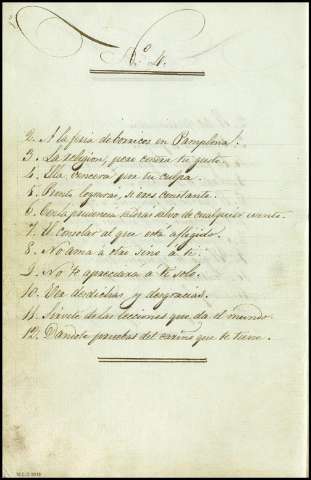 N.º 4.
2. A la feria de borricos en Pamplona.
3. La religion, pear contra tu gusto.
4. Ella vencerá por tu culpa.
5. Bente logrará, si eres constante.
6. Con la prudencia saldrás salvo de cualquier evento.
7. El consolar al que está afligido.
8. No ama á otas sino á ti.
9. No te apreciará á ti solo.
10. Vea desdichas y desgracias.
11. Sirvete de las lecciones que da el mundo.
12. Dandote pruebas del cariño que te tiene.